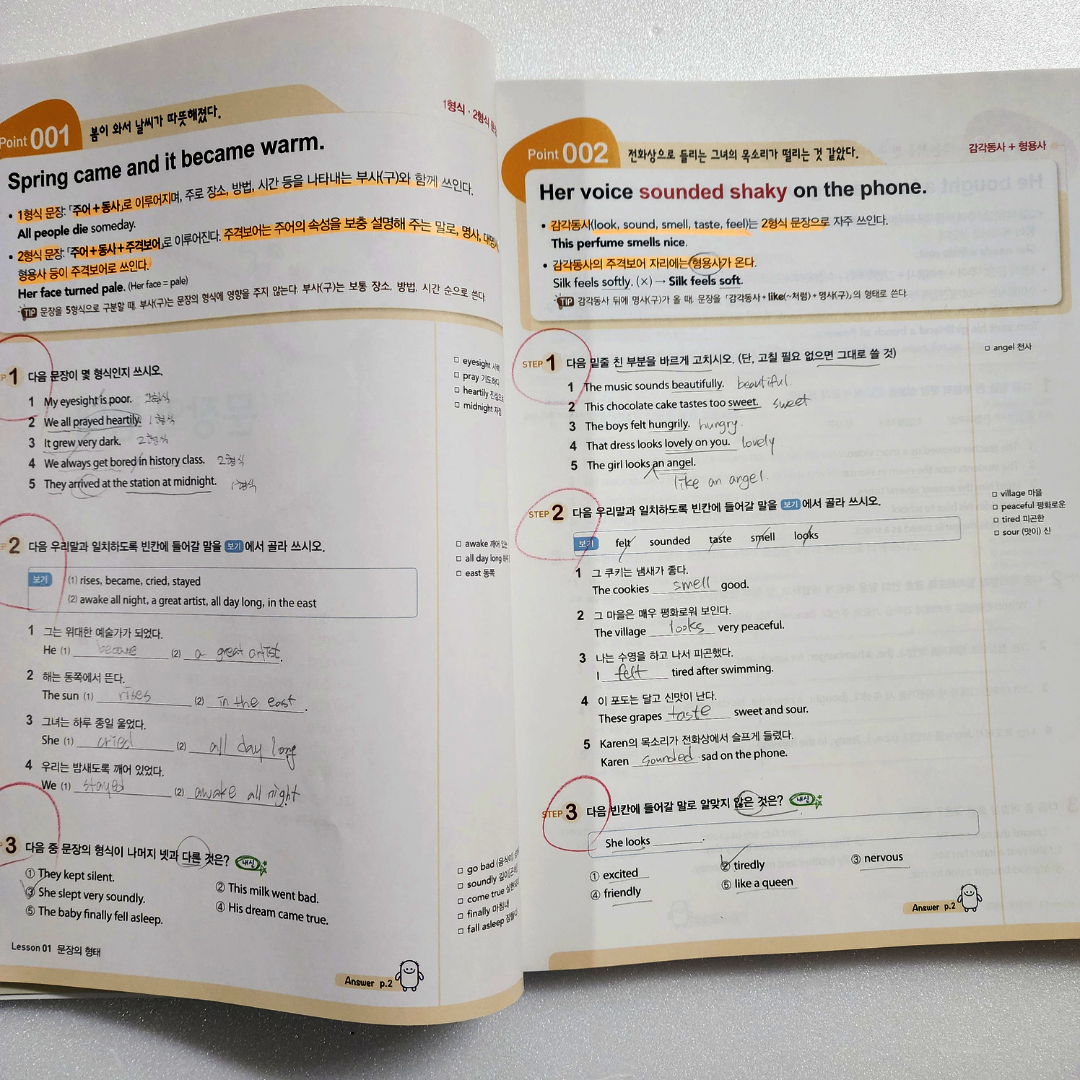 Point 001 봄이 와서 날씨가 따뜻해졌다.
1형식 · 2형식
Spring came and it became warm.
• 1형식 문장: 「주어+동사」로 이루어지며, 주로 장소, 방법, 시간 등을 나타내는 부사(구)와 함께 쓰인다.
All people die someday.
• 2형식 문장: 「주어+동사+주격보어」로 이루어진다. 주격보어는 주어의 속성을 보충 설명해 주는 말로, 명사,
형용사 등이 주격보어로 쓰인다.
Her face turned pale. (Her face = pale)
TIP 문장을 5형식으로 구분할 때, 부사(구)는 문장의 형식에 영향을 주지 않는다. 부사(구)는 보통 장소, 방법, 시간 순으로 쓴다.
1 다음 문장이 몇 형식인지 쓰시오.
1 My eyesight is poor. 2형식
2 We all prayed heartily. 1형식
3 It grew very dark. 2형식
4 We always get bored in history class. 2형식
5 They arrived at the station at midnight. 1형식
□ eyesight
□ pray
□ heartily
□ midnight
2 다음 우리말과 일치하도록 빈칸에 들어갈 말을 보기 에서 골라 쓰시오.
보기 (1) rises, became, cried, stayed
(2) awake all night, a great artist, all day long, in the east
1 그는 위대한 예술가가 되었다.
He (1) became (2) a great artist.
2 해는 동쪽에서 뜬다.
The sun (1) rises (2) in the east.
3 그녀는 하루 종일 울었다.
She (1) cried (2) all day long
4 우리는 밤새도록 깨어 있었다.
We (1) stayed (2) awake all night
□ awake 깨어
□ all day long
□ east 동쪽
3 다음 중 문장의 형식이 나머지 넷과 다른 것은? 내신
① They kept silent.
② This milk went bad.
③ She slept very soundly.
④ His dream came true.
⑤ The baby finally fell asleep.
□ go bad
□ soundly
□ come true
□ finally 마침내
□ fall asleep
Lesson 01 문장의 형태
Answer p.2
Point 002 전화상으로 들리는 그녀의 목소리가 떨리는 것 같았다.
감각동사 + 형용사
Her voice sounded shaky on the phone.
• 감각동사(look, sound, smell, taste, feel)는 2형식 문장으로 자주 쓰인다.
This perfume smells nice.
• 감각동사의 주격보어 자리에는 형용사가 온다.
Silk feels softly. (×) → Silk feels soft.
TIP 감각동사 뒤에 명사(구)가 올 때, 문장을 「감각동사+like(~처럼)+명사(구)」의 형태로 쓴다.
STEP 1 다음 밑줄 친 부분을 바르게 고치시오. (단, 고칠 필요 없으면 그대로 쓸 것)
1 The music sounds beautifully. beautiful
2 This chocolate cake tastes too sweet. sweet
3 The boys felt hungrily. hungry
4 That dress looks lovely on you. lovely
5 The girl looks an angel.
like an angel.
□ angel 천사
STEP 2 다음 우리말과 일치하도록 빈칸에 들어갈 말을 보기 에서 골라 쓰시오.
보기 felt sounded taste smell looks
1 그 쿠키는 냄새가 좋다.
The cookies smell good.
2 그 마을은 매우 평화로워 보인다.
The village looks very peaceful.
3 나는 수영을 하고 나서 피곤했다.
I felt tired after swimming.
4 이 포도는 달고 신맛이 난다.
These grapes taste sweet and sour.
5 Karen의 목소리가 전화상에서 슬프게 들렸다.
Karen sounded sad on the phone.
□ village 마을
□ peaceful 평화로운
□ tired 피곤한
□ sour (맛이) 신
STEP 3 다음 빈칸에 들어갈 말로 알맞지 않은 것은? 내신
She looks ________.
① excited
② tiredly
③ nervous
④ friendly
⑤ like a queen
Answer p.2